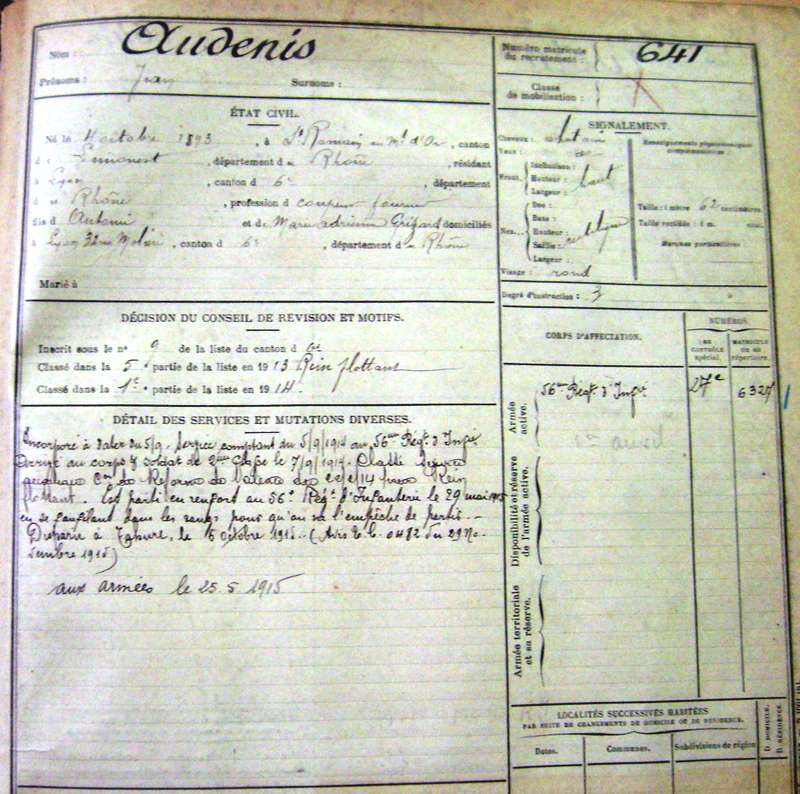 Nom : Audenis
Prénoms : Jean Surnoms :
Numéro matricule
du recrutement : 641
Classe
de mobilisation :
ÉTAT CIVIL.
Né le 4 octobre 1893, à St Romain au Mt d'Or, canton
de Limonest, département du Rhône, résidant
à Lyon, canton d 6e, département
du Rhône, profession de coupeur
fils d et de Marie domiciliés
à Lyon, canton d 6e, département du Rhône
Marié à
SIGNALEMENT.
Cheveux :
Yeux :
Front. Inclinaison :
Hauteur : haut
Largeur :
Nez. Dos :
Base :
Hauteur :
Saillie :
Largeur :
Visage : rond
Renseignements physionomiques
complémentaires :
Taille : 1 mètre 62 centimètres.
Taille rectifiée : 1 m. cent.
Marques particulières
Degré d'instruction : 3
DÉCISION DU CONSEIL DE REVISION ET MOTIFS.
Inscrit sous le n° 9 de la liste du canton d 6e
Classé dans la 5e partie de la liste en 1913 Rein flottant
Classé dans la 1e partie de la liste en 1914
CORPS D'AFFECTATION.
NUMÉROS
au
contrôle
spécial.
matricule
ou au
répertoire.
Armée
active.
56me Régt d'Infie 27e 6327
Disponibilité et réserve
de l'armée active.
Armée territoriale
et sa réserve.
DÉTAIL DES SERVICES ET MUTATIONS DIVERSES.
Incorporé à dater du 5/9. Service comptant du 5/9/1914 au 56me Régt d'Infie
Arrivé au corps & soldat de 2me classe le 7/9/1914. Classé service
Con de Réforme de Valence Rein
flottant. Est parti en renfort au 56e Régt d'Infanterie le 29 mai 1915
en se faufilant dans les rangs pour qu'on ne l'empêche de partir.
Disparu à Tahure, le 5 octobre 1915. (Avis 0482 du 29 No-
vembre 1915)
aux armées le 25.5.1915
LOCALITÉS SUCCESSIVES HABITÉES
PAR SUITE DE CHANGEMENTS DE DOMICILE OU DE RÉSIDENCE.
Dates. Communes. Subdivisions de région
D. DOMICILE.
R. RÉSIDENCE.